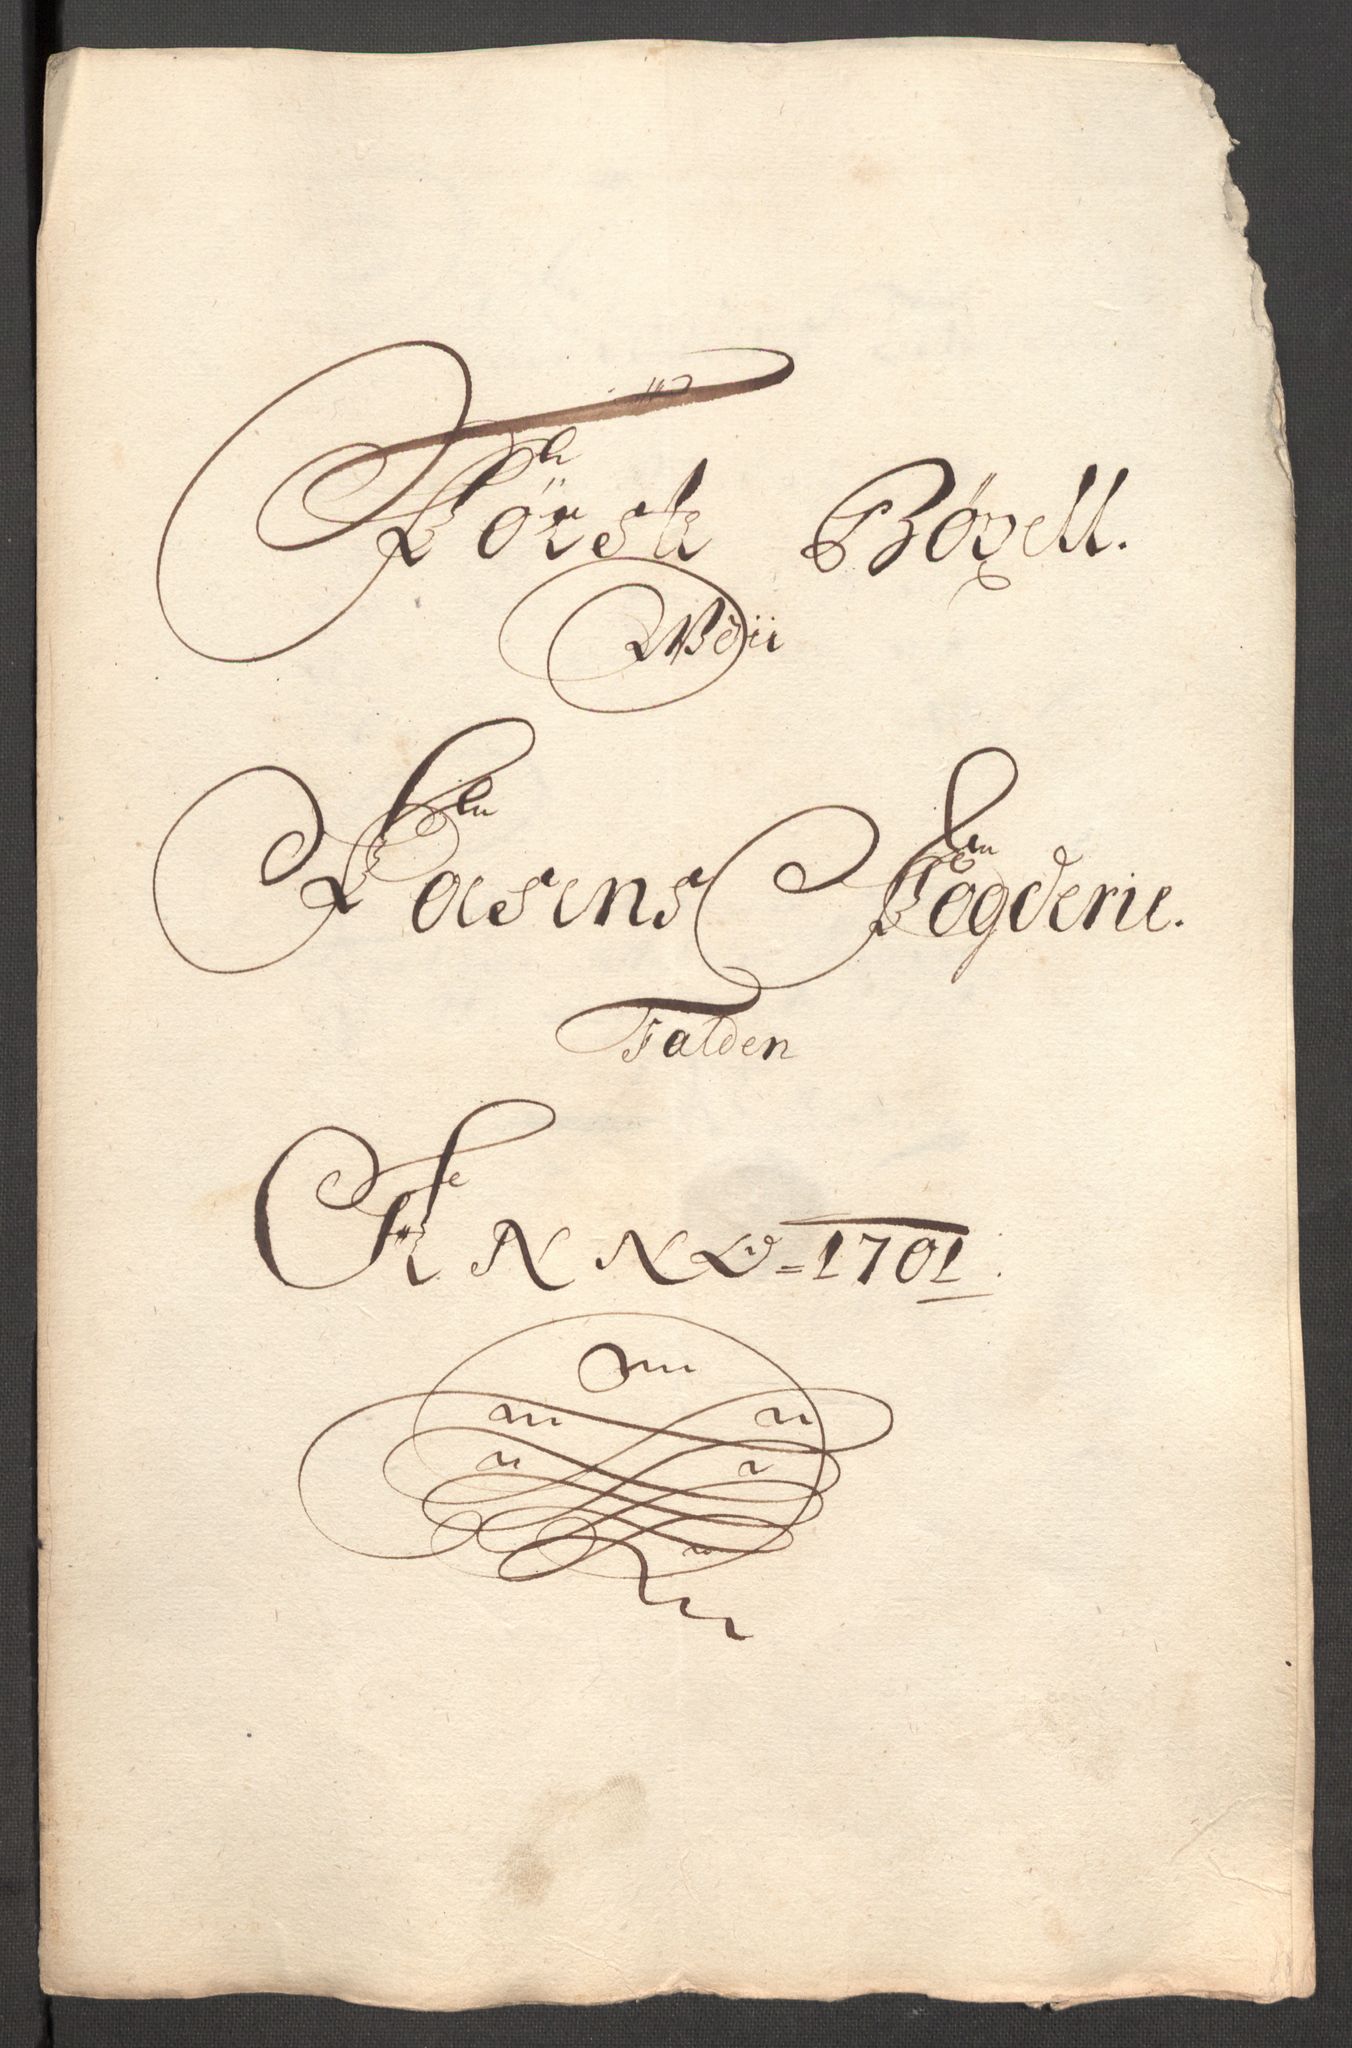 Første Bøxell.
Wdii
Fosens Fogderie.
Falden
ANNO=1701.